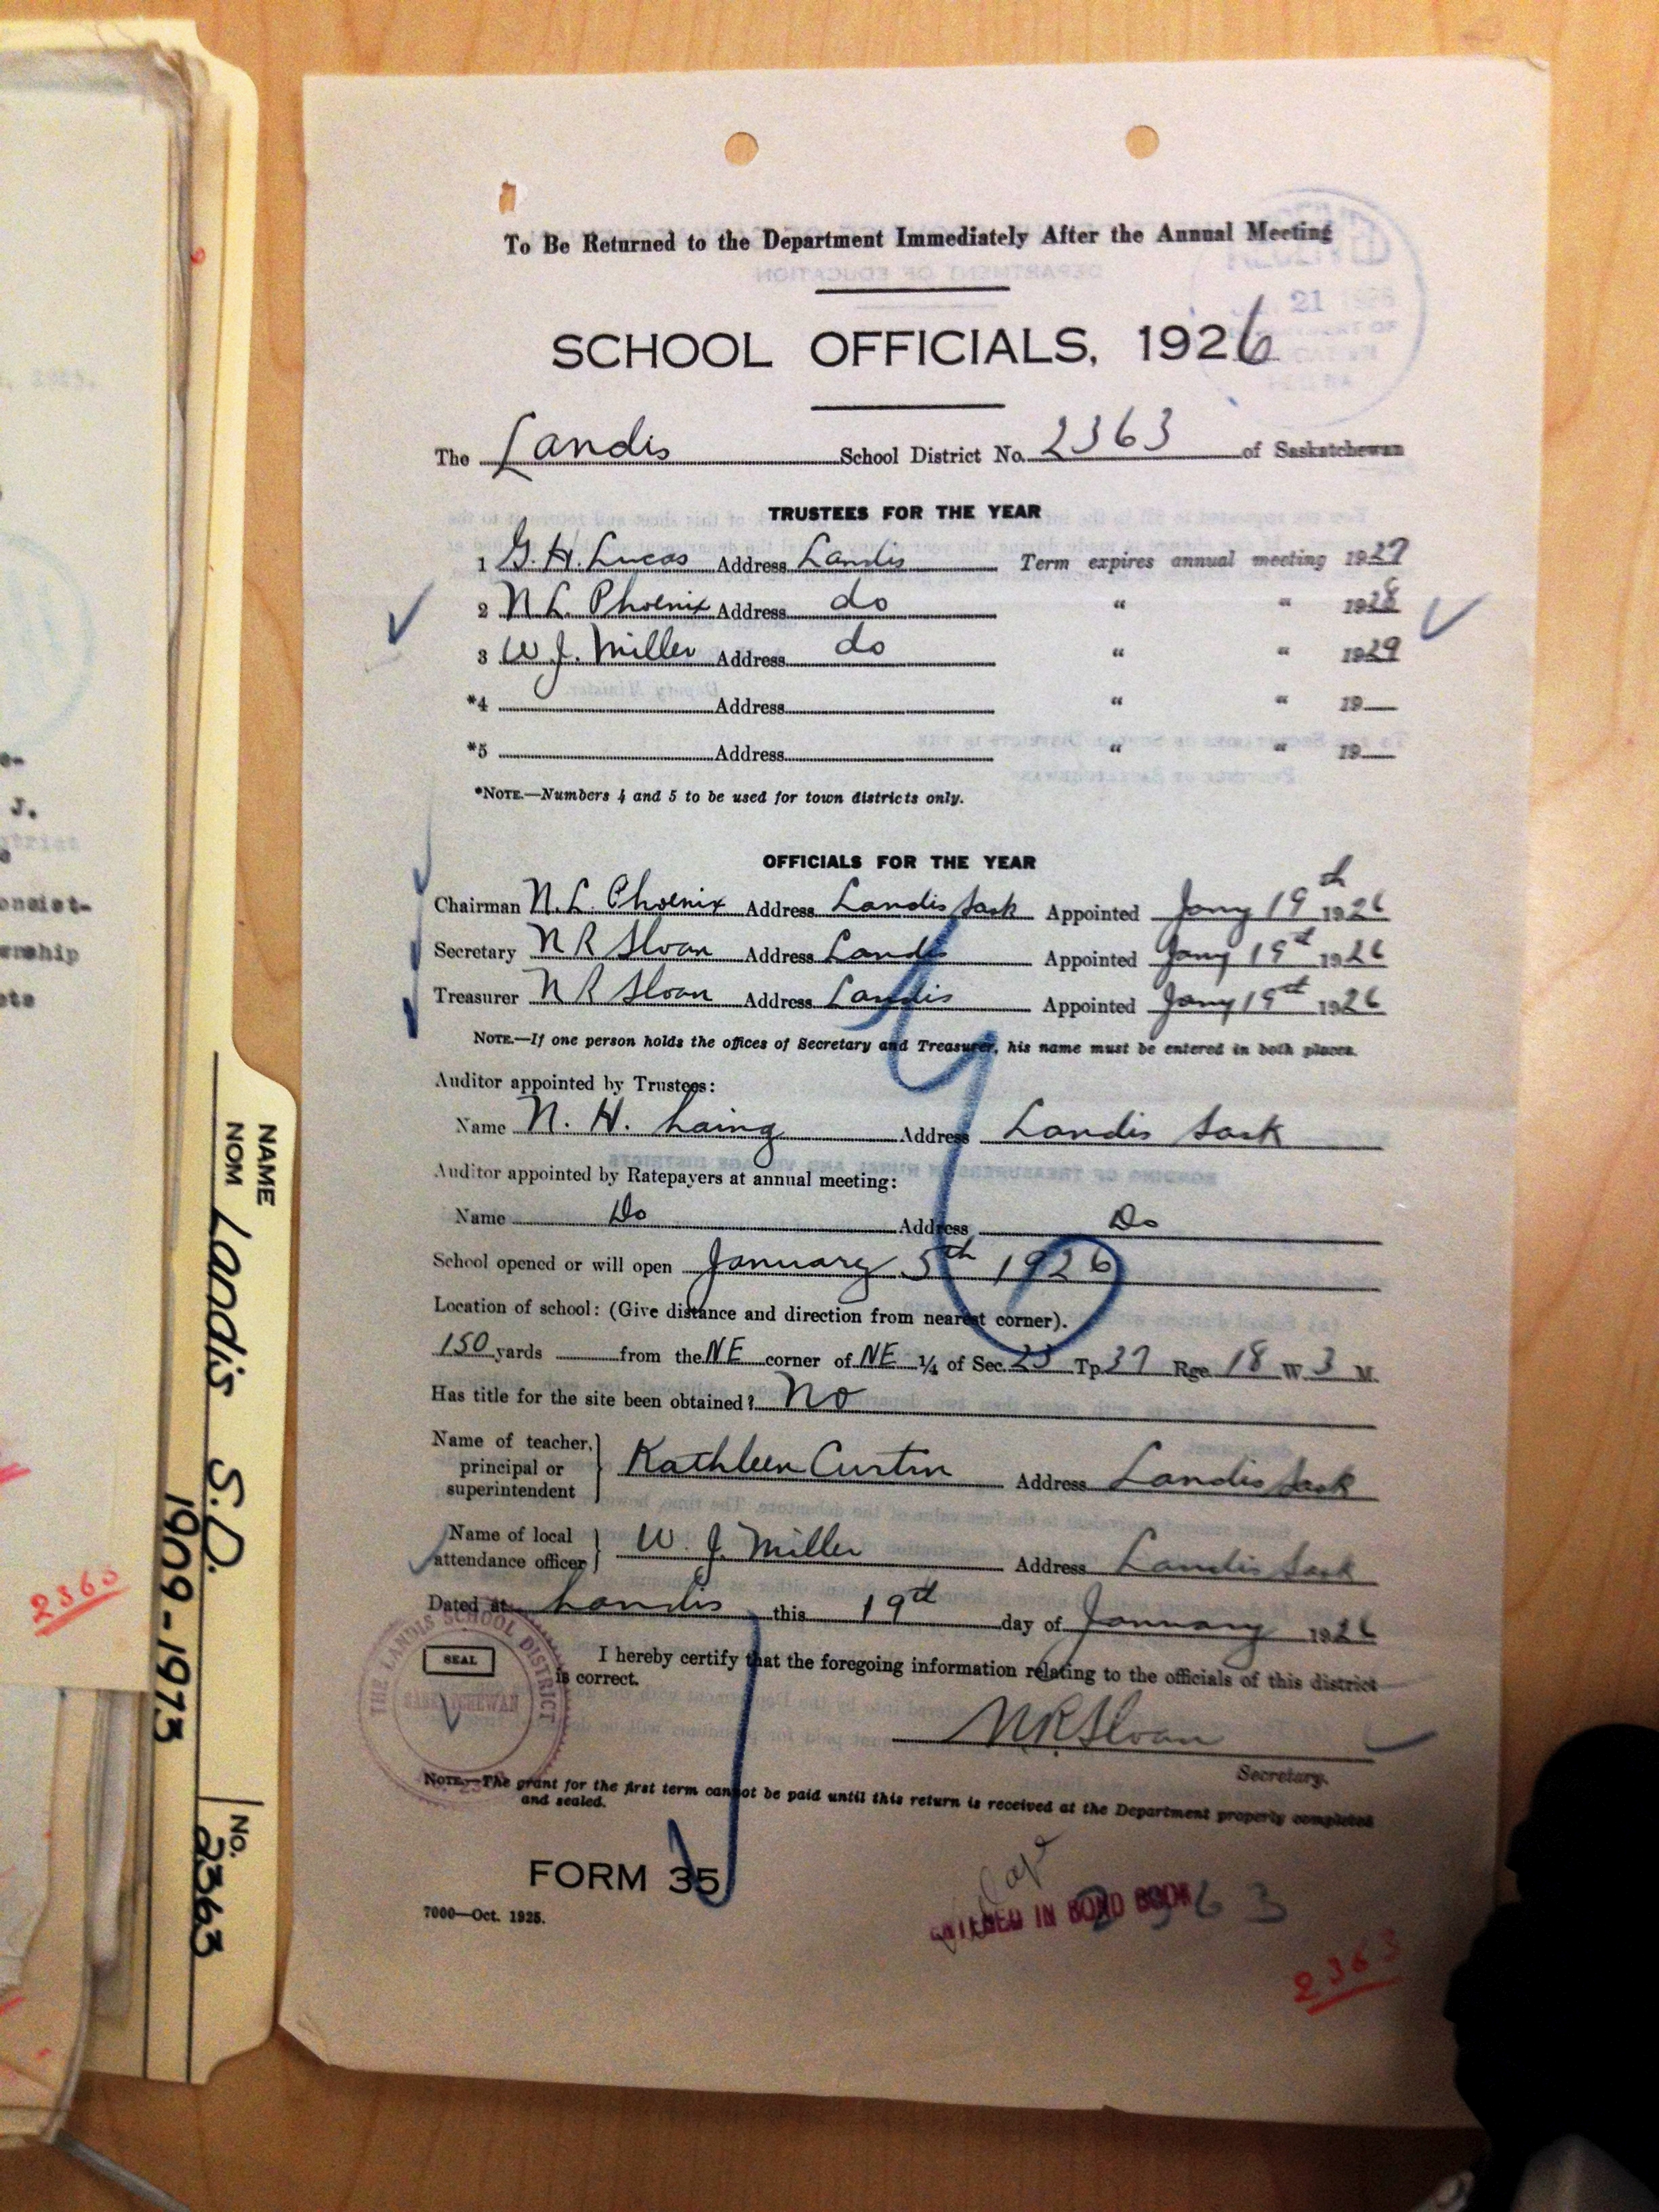 To Be Returned to the Department Immediately After the Annual Meeting
SCHOOL OFFICIALS, 1926
The Landis School District No. 2363 of Saskatchewan
TRUSTEES FOR THE YEAR
1 G. H. Lucas Address Landis Term expires annual meeting 1927
2 N L. Phoenix Address do " " 1928
3 W J. Miller Address do " " 1929
*4 Address " " 19
*5 Address " " 19
*NOTE.—Numbers 4 and 5 to be used for town districts only.
OFFICIALS FOR THE YEAR
Chairman N. L. Phoenix Address Landis Sask Appointed Jany 19th 1926
Secretary N R Sloan Address Landis Appointed Jany 19th 1926
Treasurer N R Sloan Address Landis Appointed Jany 19th 1926
NOTE.—If one person holds the offices of Secretary and Treasurer, his name must be entered in both places.
Auditor appointed by Trustees:
Name N. H. Laing Address Landis Sask
Auditor appointed by Ratepayers at annual meeting:
Name Do Address Do
School opened or will open January 5th 1926
Location of school: (Give distance and direction from nearest corner).
150 yards from the NE corner of NE ¼ of Sec. 23 Tp. 37 Rge. 18 W. 3 M.
Has title for the site been obtained? No
Name of teacher, principal or superintendent Kathleen Curtin Address Landis Sask
Name of local attendance officer W. J. Miller Address Landis Sask
Dated at Landis this 19th day of January 1926
THE LANDIS SCHOOL DISTRICT
SASKATCHEWAN
SEAL
I hereby certify that the foregoing information relating to the officials of this district
is correct.
N R Sloan
Secretary.
NOTE.—The grant for the first term cannot be paid until this return is received at the Department properly completed
and sealed.
FORM 35
7000—Oct. 1925.
ENTERED IN BOND BOOK
2363
2363
NAME
NOM
Landis S.D.
1909-1973
No.
2363
2363